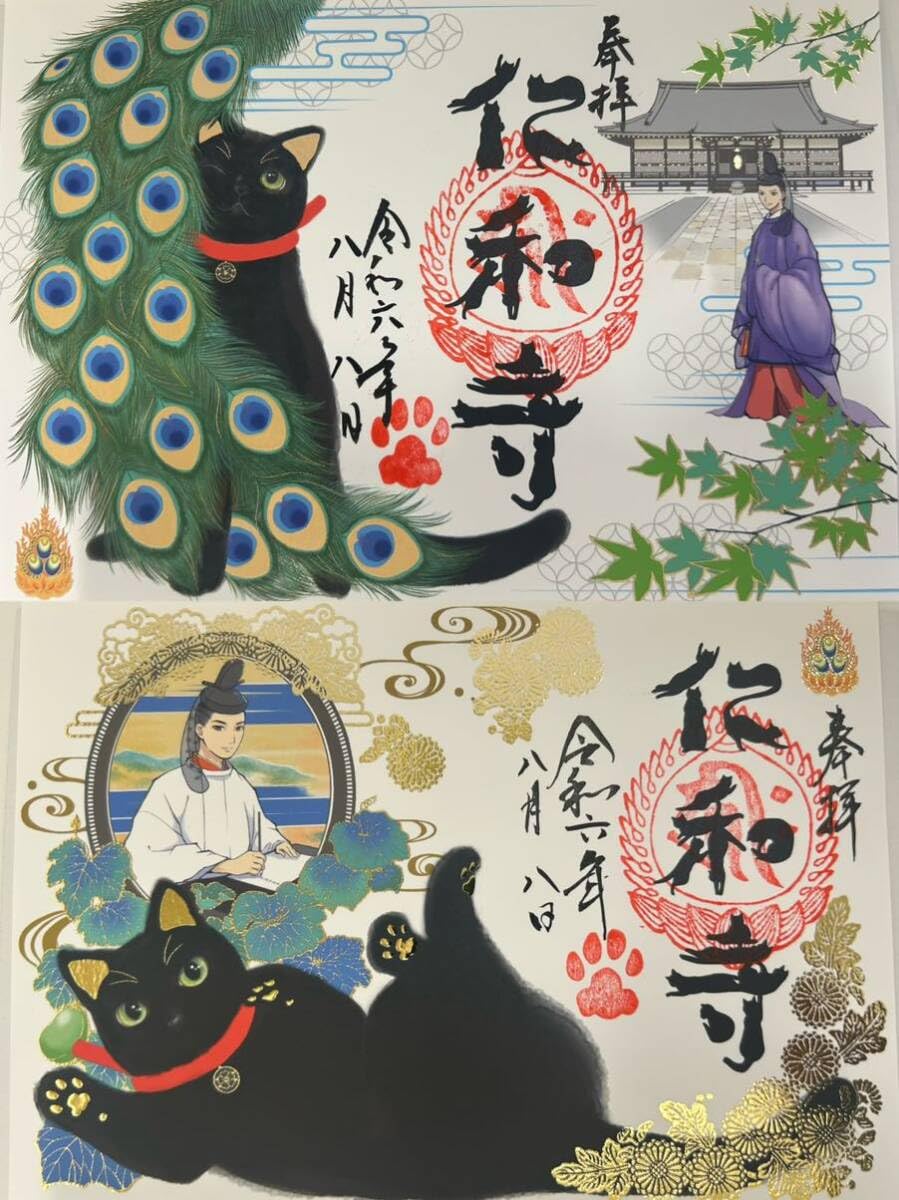 奉拝
仁和寺
令和六年
八月八日
奉拝
仁和寺
令和六年
八月八日